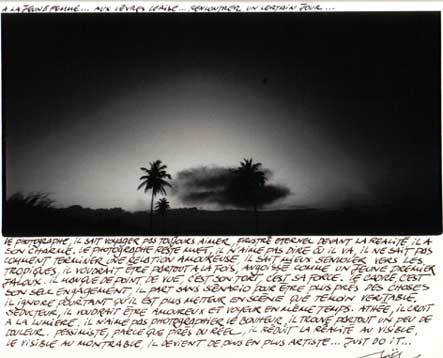 A LA JEUNE FEMME... AUX LÈVRES CERISE... RENCONTRER UN CERTAIN JOUR...
LE PHOTOGRAPHE, IL SAIT VOYAGER PAS TOUJOURS AIMER, FRUSTRÉ ETERNEL DEVANT LA REALITÉ IL A
SON CHARME. LE PHOTOGRAPHE RESTE MUET, IL N'AIME PAS DIRE OÙ IL VA, IL NE SAIT PAS
COMMENT TERMINER UNE RELATION AMOUREUSE. IL SAIT MIEUX S'ENVOLER VERS LES
TROPIQUES, IL VOUDRAIT ÊTRE PARTOUT A LA FOIS, ANGOISSÉ COMME UN JEUNE PREMIER
JALOUX. IL MANQUE DE POINT DE VUE, C'EST SON TORT C'EST SA FORCE. LE CADRE C'EST
SON SEUL ENGAGEMENT. IL MET SANS SCENARIO POUR ÊTRE PLUS PRÈS DES CHOSES
IL IGNORE POURTANT QU'IL EST PLUS METTEUR EN SCÈNE QUE TEMOIN VERITABLE,
SÉDUCTEUR, IL VOUDRAIT ÊTRE AMOUREUX ET VOYEUR EN MÊME TEMPS. ATHÉE, IL CROIT
A LA LUMIÈRE. IL N'AIME PAS PHOTOGRAPHIER LE BONHEUR, IL TROUVE PARTOUT UN PEU DE
DOULEUR. PESSIMISTE, PARCE QUE PRÈS DU RÉEL, IL RÉDUIT LA RÉALITÉ AU VISIBLE,
LE VISIBLE AU MONTRABLE, IL DEVIENT DE PLUS EN PLUS ARTISTE... JUST DO IT...